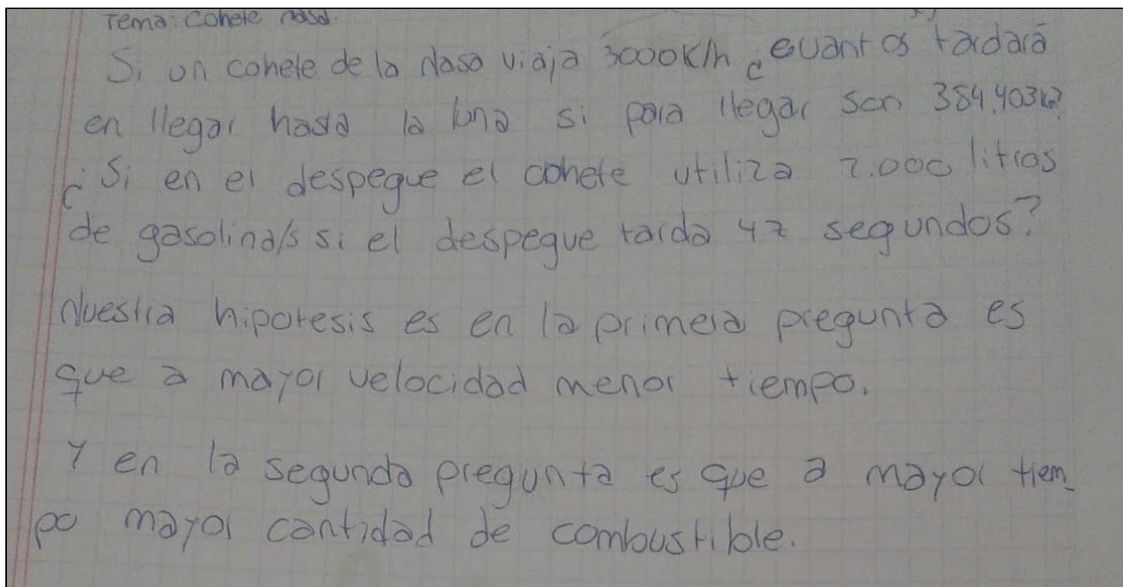 Tema: Cohete nasa.
Si un cohete de la Nasa viaja 3000K/h ¿cuantos tardará
en llegar hasta la luna si para llegar son 384.403k?
¿Si en el despegue el cohete utiliza 2.000 litros
de gasolina/s si el despegue tarda 42 segundos?
Nuestra hipotesis es en la primera pregunta es
que a mayor velocidad menor tiempo.
Y en la segunda pregunta es que a mayor tiem_
po mayor cantidad de combustible.